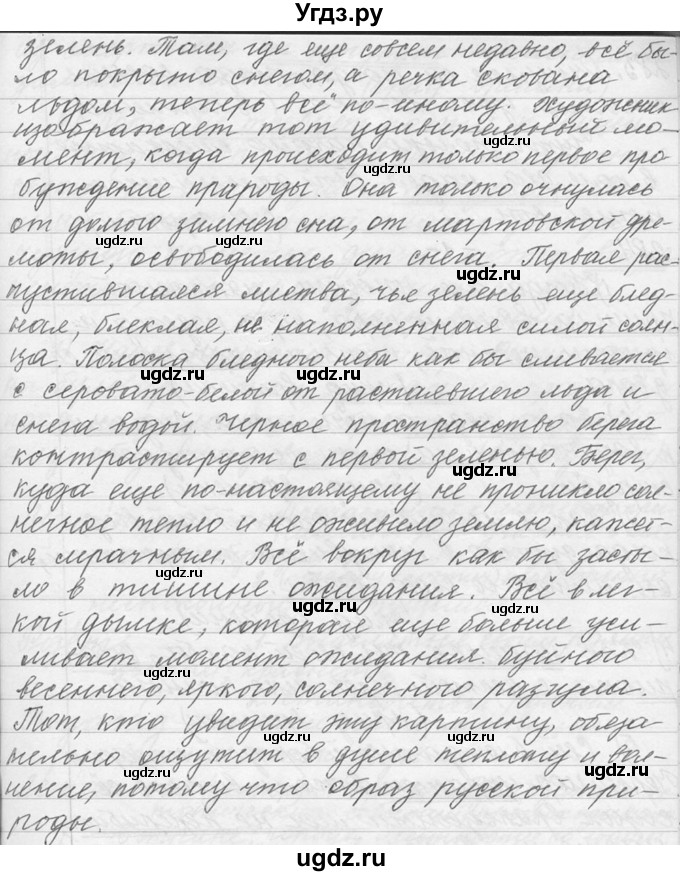 Угдз.ру
зелень. Там, где еще совсем недавно, всё бы-
ло покрыто снегом, а речка скована
льдом, теперь всё по-иному. Художник
изображает тот удивительный мо-
мент, когда происходит только первое про-
буждение прароды. Она только очнулась
от долгого зимнего сна, от мартовской дре-
моты, освободилась от снега. Первая рас-
пустившаяся листва, чья зелень еще блед-
ная, блеклая, не наполненная силой солн-
ца. Полоска бледного неба как бы сливается
с серовато-белой от растаявшего льда и
снега водой. Черное пространство берега
контрастирует с первой зеленью. Берег,
куда еще по-настоящему не проникло сол-
нечное тепло и не оживило землю, кажет-
ся мрачным. Всё вокруг как бы засты-
ло в тишине ожидания. Всё в лег-
кой дымке, которая еще больше уси-
ливает момент ожидания буйного
весеннего, яркого, солнечного разгула.
Тот, кто увидит эту картину, обяза-
тельно ощутит в душе теплоту и вол-
нение, потому что образ русской при-
роды.
ugdz.ru